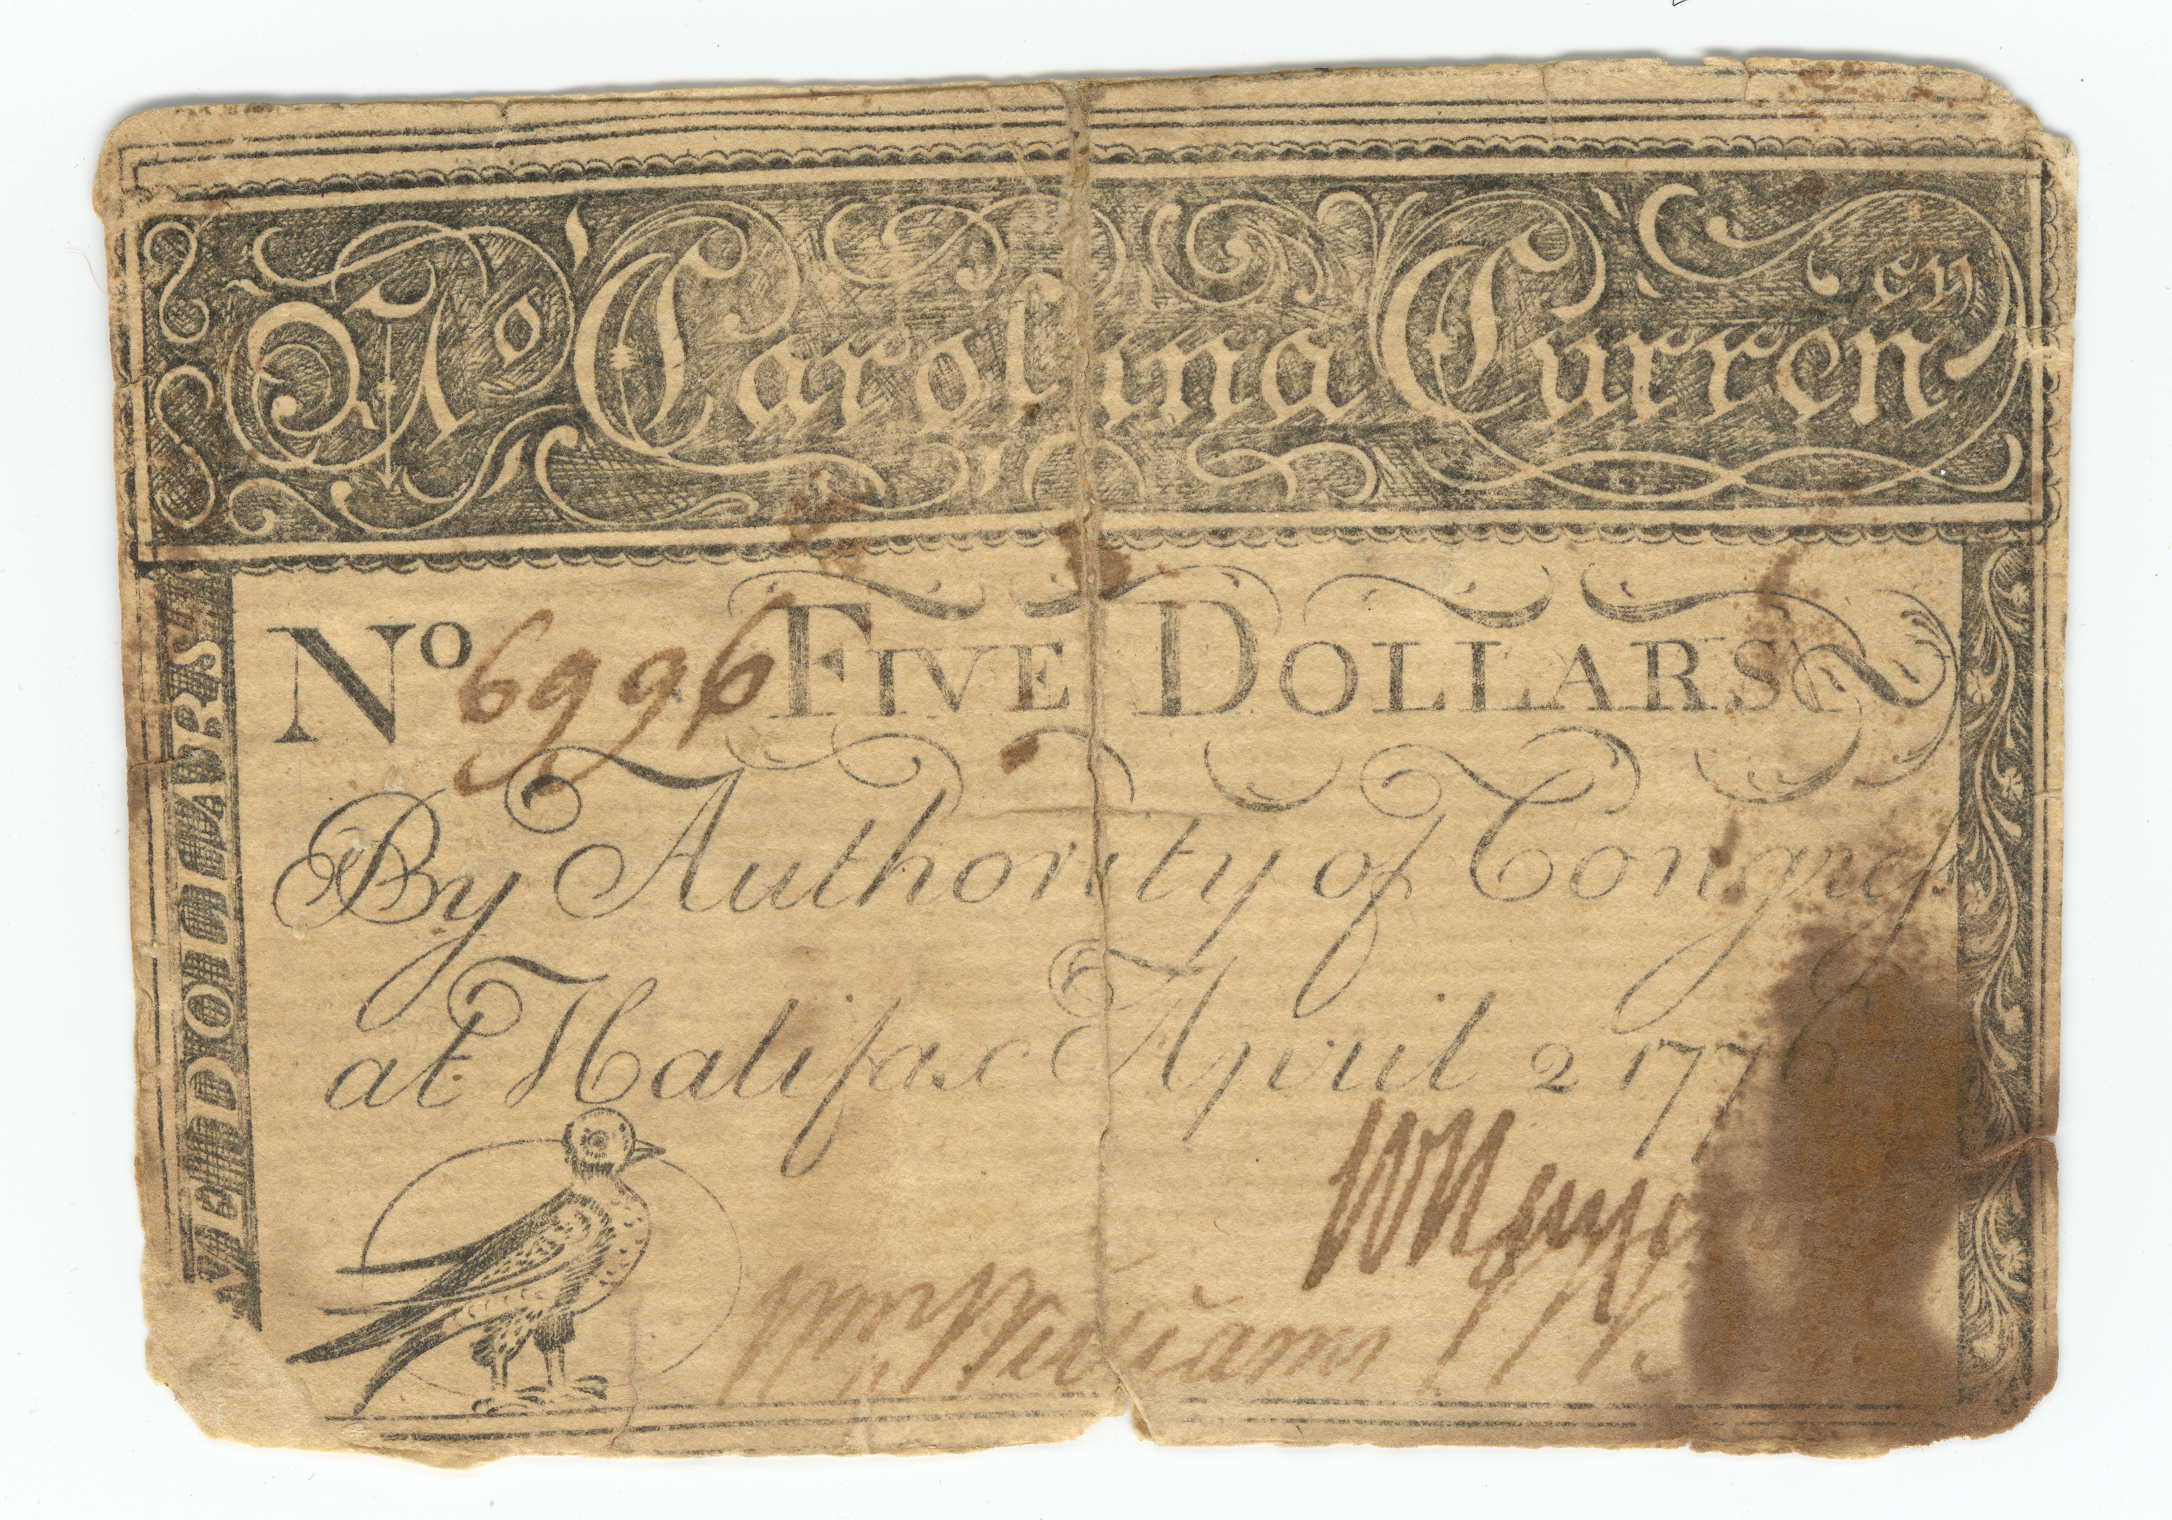 No Carolina Currency
V DOLLARS
No 6996 FIVE DOLLARS
By Authority of Congress
at Halifax April 2 1776
Wm Williams